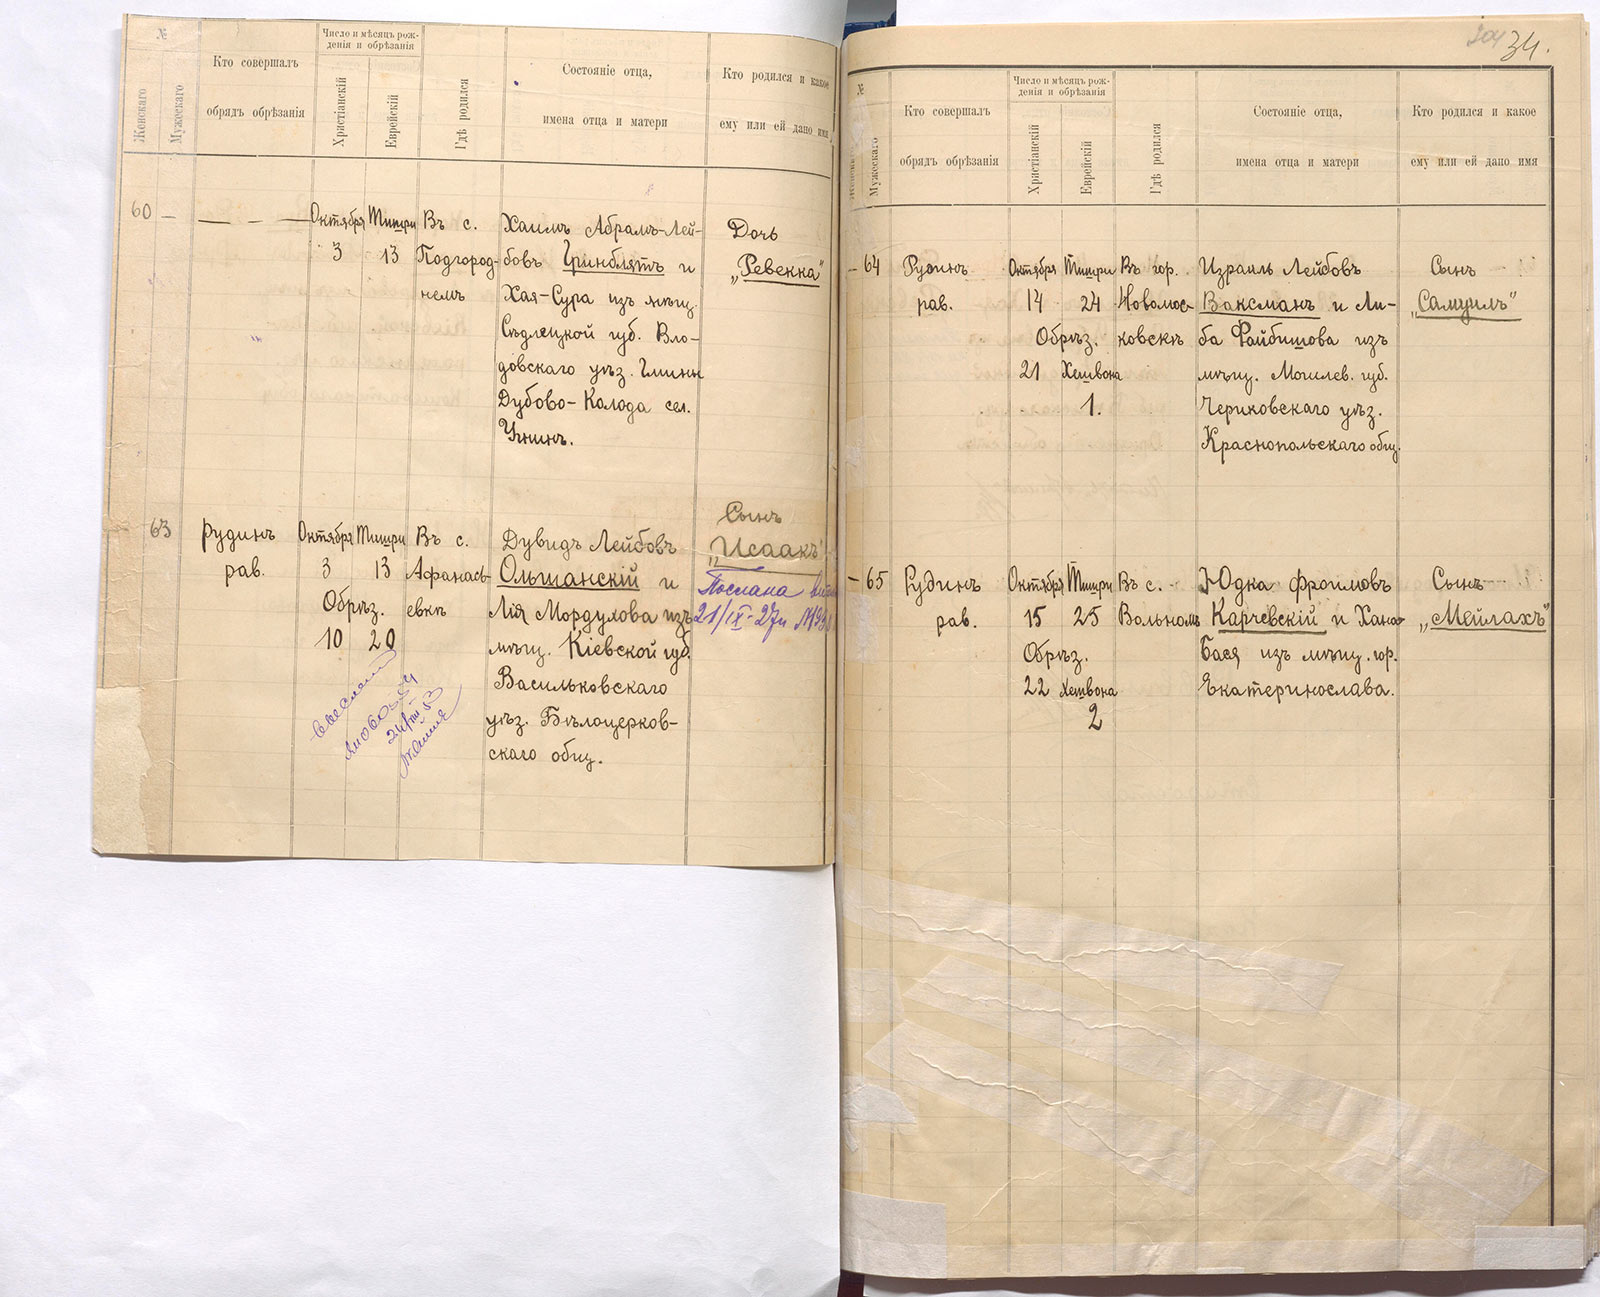 №
Женскаго
Мужескаго
Кто совершалъ
обрядъ обрѣзанія
Число и мѣсяцъ рож-
денія и обрѣзанія
Христіанскій
Еврейскій
Гдѣ родился
Состояніе отца,
имена отца и матери
Кто родился и какое
ему или ей дано имя
60 —
— — - —
Октября
3
Тишри
13
Въ с.
Подгород-
немъ
Хаимъ Абрамъ-Лей-
бовъ Гринблятъ и
Хая-Сура изъ мѣщ.
Сѣдлецкой губ. Вло-
довскаго уѣз. Гмины
Дубово-Колода сел.
Угнинъ.
Дочь
„Ревекка"
63
Рудинъ
рав.
Октября
3
Тишри
13
Обрѣз.
10 20
Въ с.
Афанась-
евкѣ
Дувидъ Лейбовъ
Ольшанскій и
Лія Мордухова изъ
мѣщ. Кіевской губ.
Васильковскаго
уѣз. Бѣлоцерков-
скаго общ.
Сынъ
„Исаакъ"
Послана
21/IX-27г
34.
№
Мужескаго
Кто совершалъ
обрядъ обрѣзанія
Число и мѣсяцъ рож-
денія и обрѣзанія
Христіанскій
Еврейскій
Гдѣ родился
Состояніе отца,
имена отца и матери
Кто родился и какое
ему или ей дано имя
— 64
Рудинъ
рав.
Октября
14
Тишри
24
Обрѣз.
21 Хешвона
1.
Въ гор.
Новомос-
ковскѣ
Израиль Лейбовъ
Ваксманъ и Ли-
ба Файбишова изъ
мѣщ. Могилев. губ.
Чериковскаго уѣз.
Краснопольскаго общ.
Сынъ
„Самуилъ"
— 65
Рудинъ
рав.
Октября
15
Тишри
25
Обрѣз.
22 Хешвона
2
Въ с.
Вольномъ
Юдка Фроимовъ
Карчевскій и Хана
Бася изъ мѣщ. гор.
Екатеринослава.
Сынъ
„Мейлахъ"